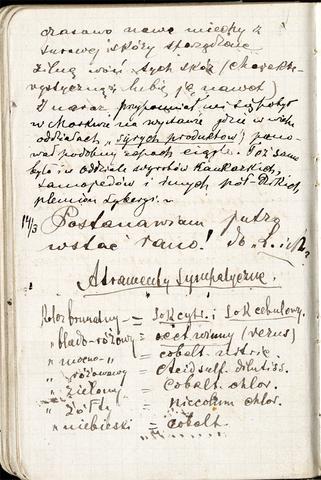 czasowo nowe miechy z
surowej skóry sporządzone
silną woń tych skór (charakte-
rystyczną i lubię ją nawet)
I naraz przypomniał mi się pobyt
w Moskwie na wystawie gdzie w wielu
oddziałach „surych produktów” pano-
wał podobny zapach ciągle. Toż samo
było i w oddziale wyrobów kaukazkich,
samojedów i innych pół-dzikich
plemion Syberyi.
14/3 Postanawiam jutro
wstać rano!
Atramenty Sympatyczne.
Kolor brunatny = sok cytr. i sok cebulowy.
„ blado-różowy = ocet winny (verus)
„ mocno- „ = cobalt. nitric.
„ różowawy = Acid sulf. dilutiss.
„ zielony = Cobalt. chlor.
„ żółty = niccolum chlor.
„ niebieski = cobalt.